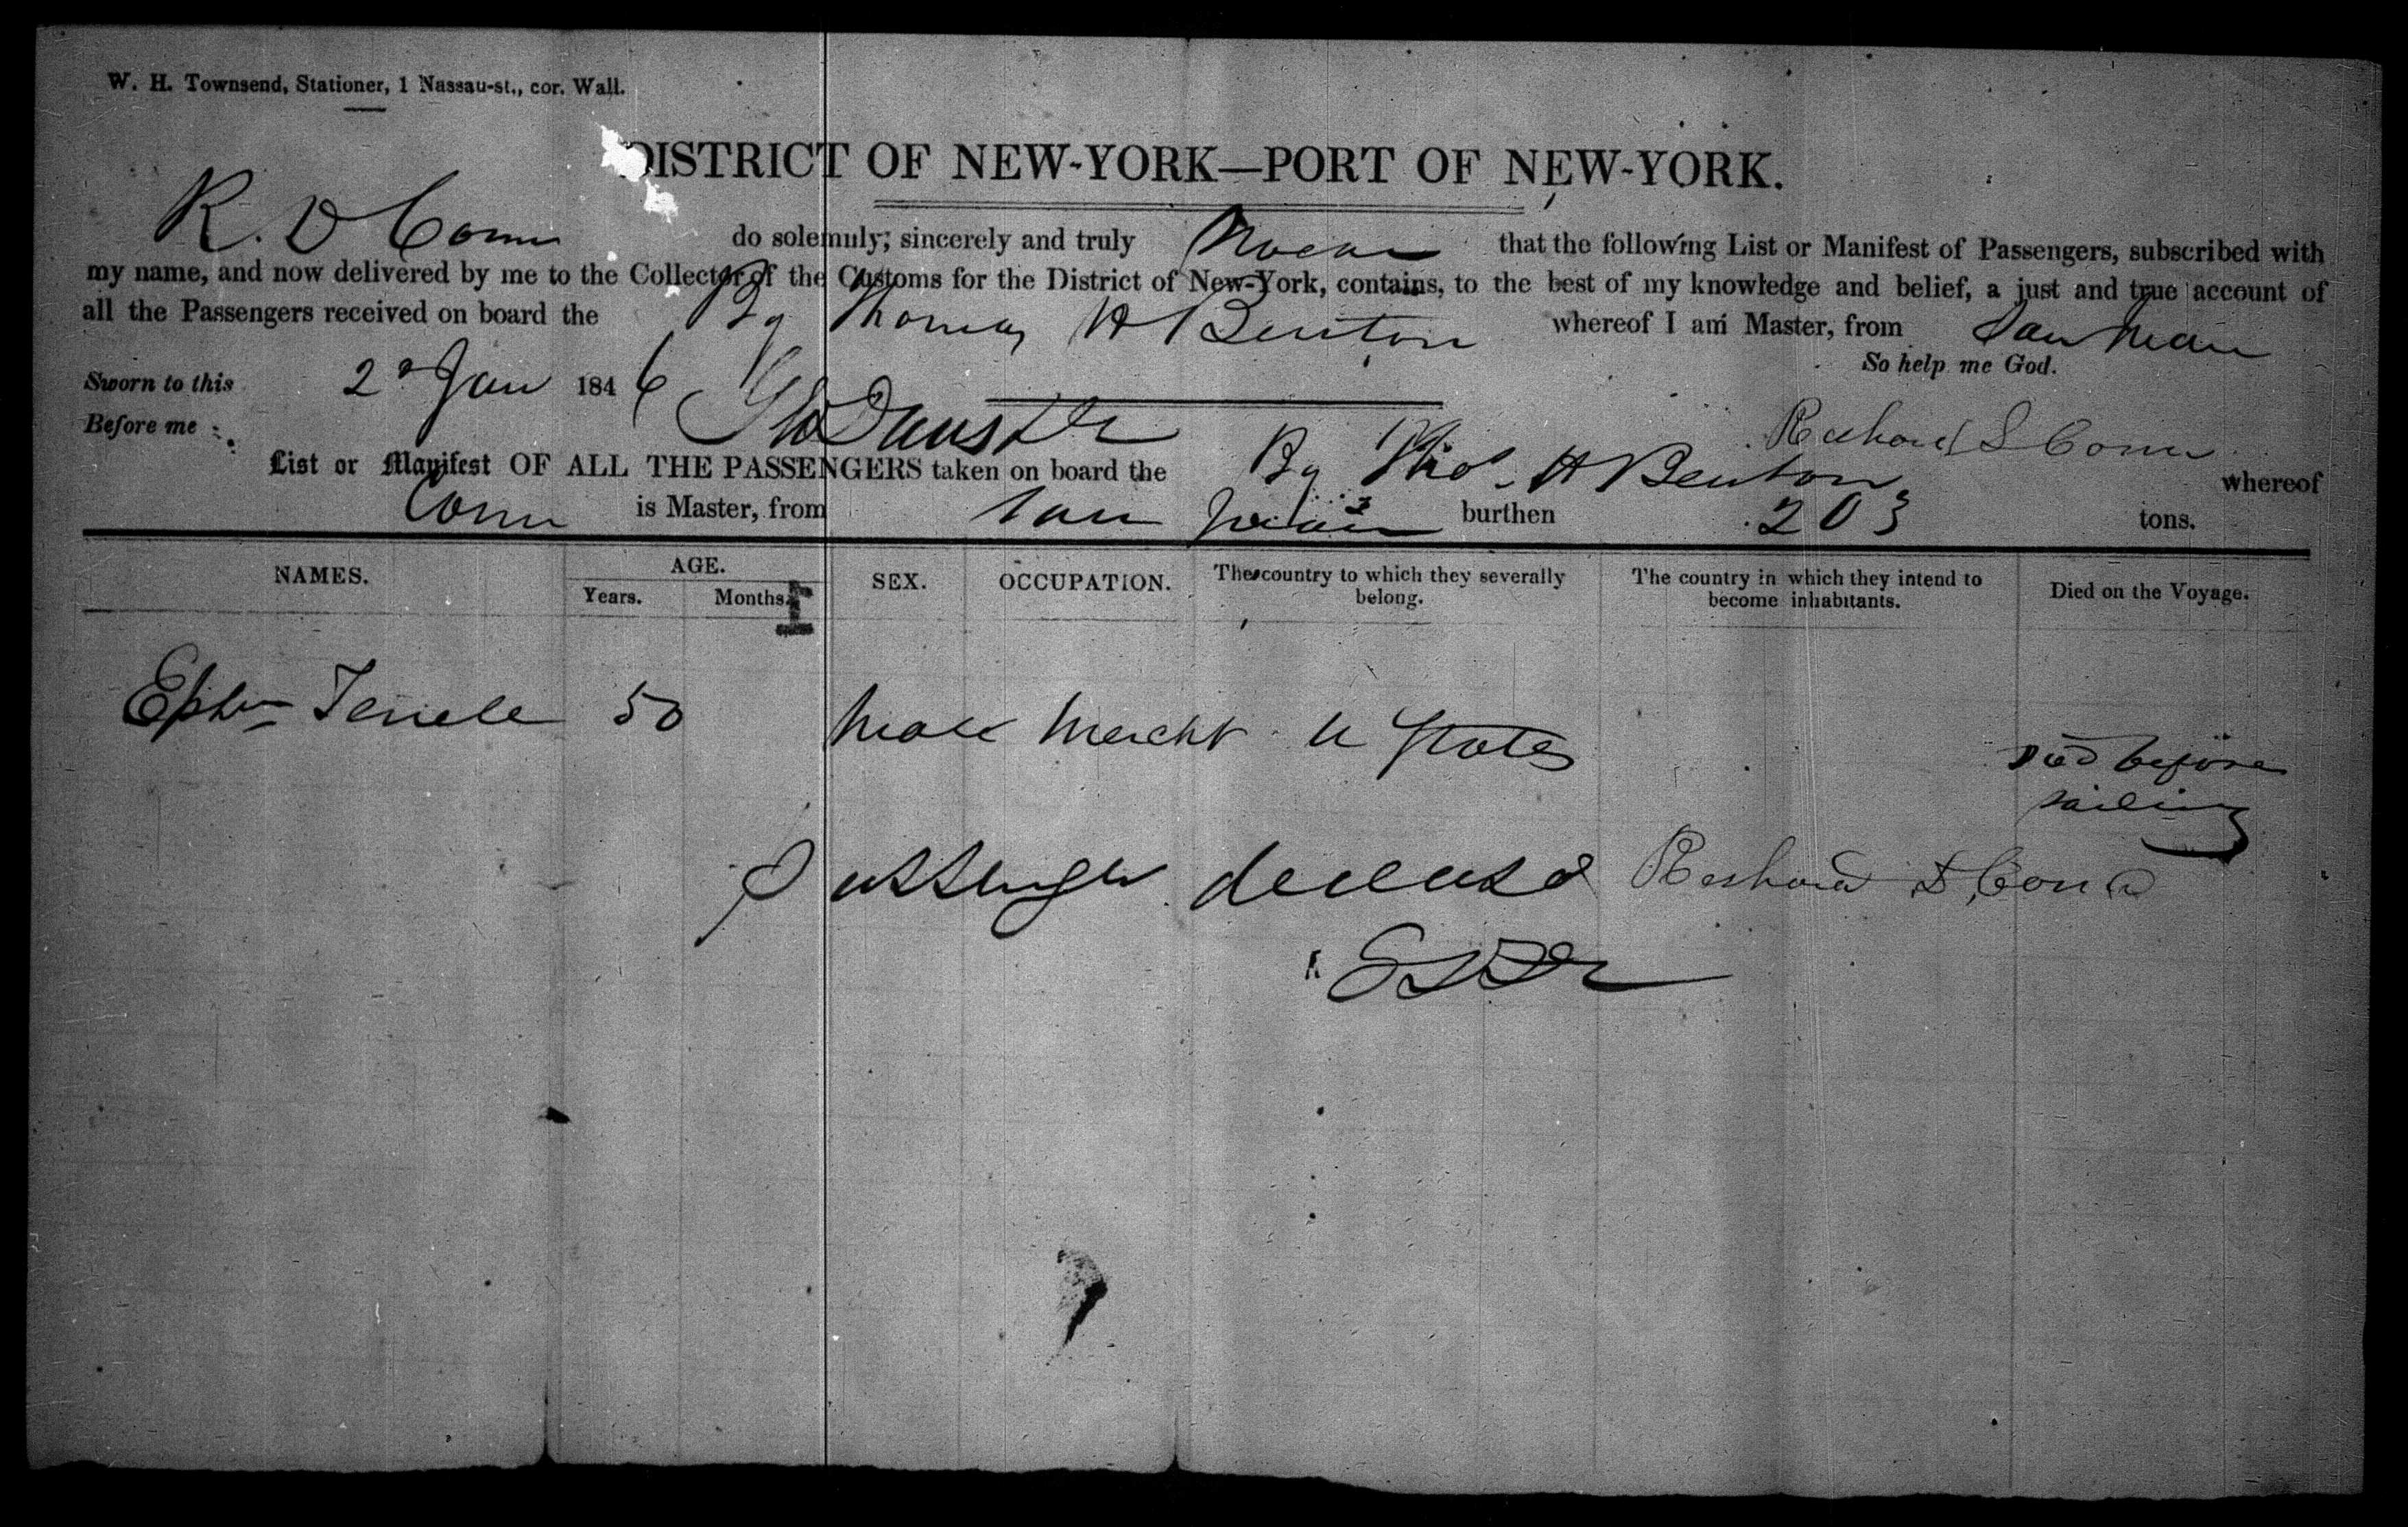 W. H. Townsend, Stationer, 1 Nassau-st., cor. Wall.
DISTRICT OF NEW-YORK—PORT OF NEW-YORK.
R. D Conn do solemnly, sincerely and truly swear that the following List or Manifest of Passengers, subscribed with
my name, and now delivered by me to the Collector of the Customs for the District of New-York, contains, to the best of my knowledge and belief, a just and true account of
all the Passengers received on board the Bg Thomas H Benton whereof I am Master, from San Juan
So help me God.
Sworn to this 2d Jan 1846
Before me
List or Manifest OF ALL THE PASSENGERS taken on board the Bg Thos H Benton whereof
Conn is Master, from San Juan burthen 203 tons.
NAMES. AGE. SEX. OCCUPATION. The country to which they severally belong. The country in which they intend to become inhabitants. Died on the Voyage.
Years. Months.
Ephm 50 Male Mercht U States Died before
sailing
Passenger deceased